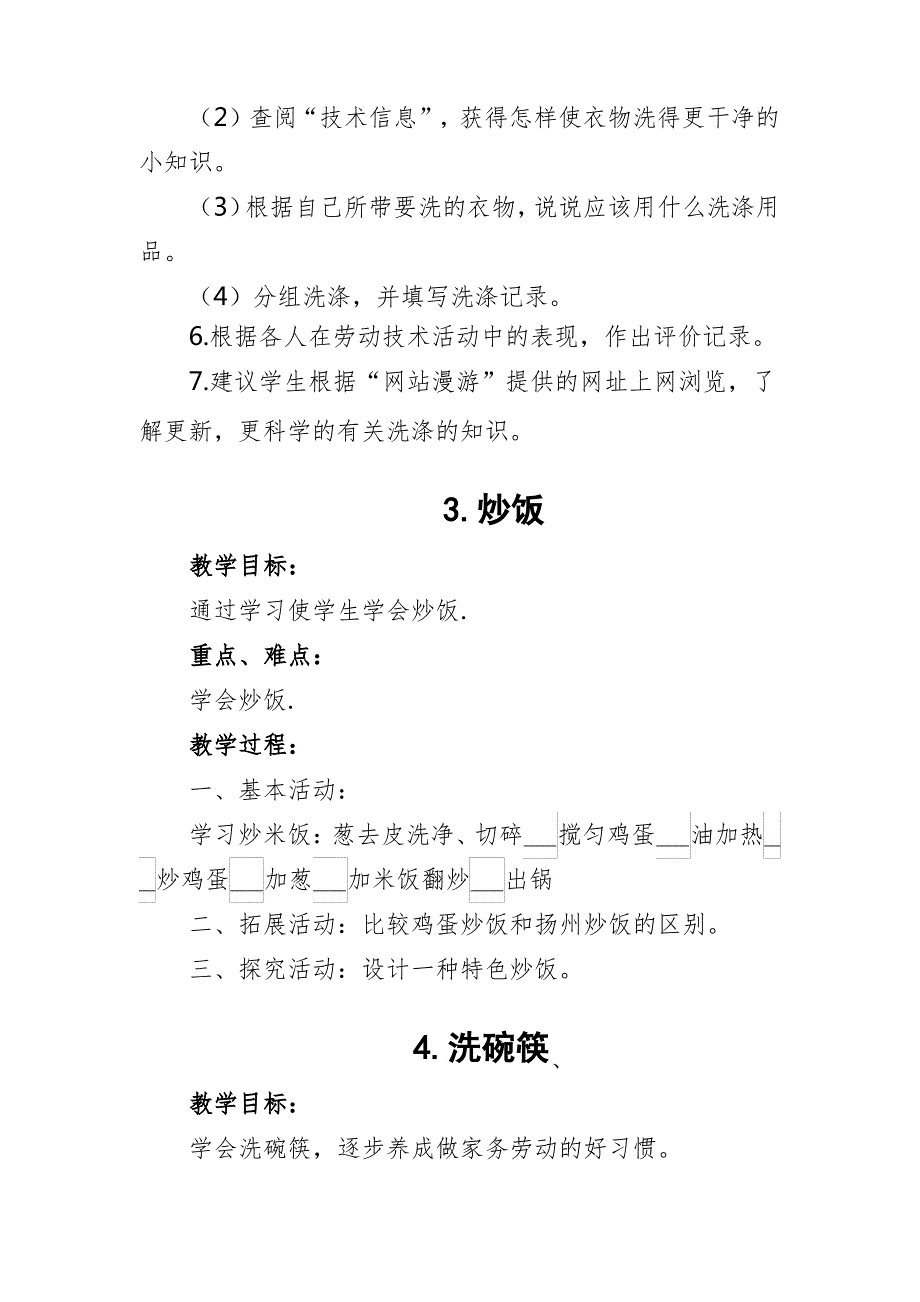 （2）查阅“技术信息”，获得怎样使衣物洗得更干净的
小知识。
（3）根据自己所带要洗的衣物，说说应该用什么洗涤用
品。
（4）分组洗涤，并填写洗涤记录。
6.根据各人在劳动技术活动中的表现，作出评价记录。
7.建议学生根据“网站漫游”提供的网址上网浏览，了
解更新，更科学的有关洗涤的知识。
3.炒饭
教学目标：
通过学习使学生学会炒饭.
重点、难点：
学会炒饭.
教学过程：
一、基本活动：
学习炒米饭：葱去皮洗净、切碎__搅匀鸡蛋__油加热_
_炒鸡蛋__加葱__加米饭翻炒__出锅
二、拓展活动：比较鸡蛋炒饭和扬州炒饭的区别。
三、探究活动：设计一种特色炒饭。
4.洗碗筷、
教学目标：
学会洗碗筷，逐步养成做家务劳动的好习惯。